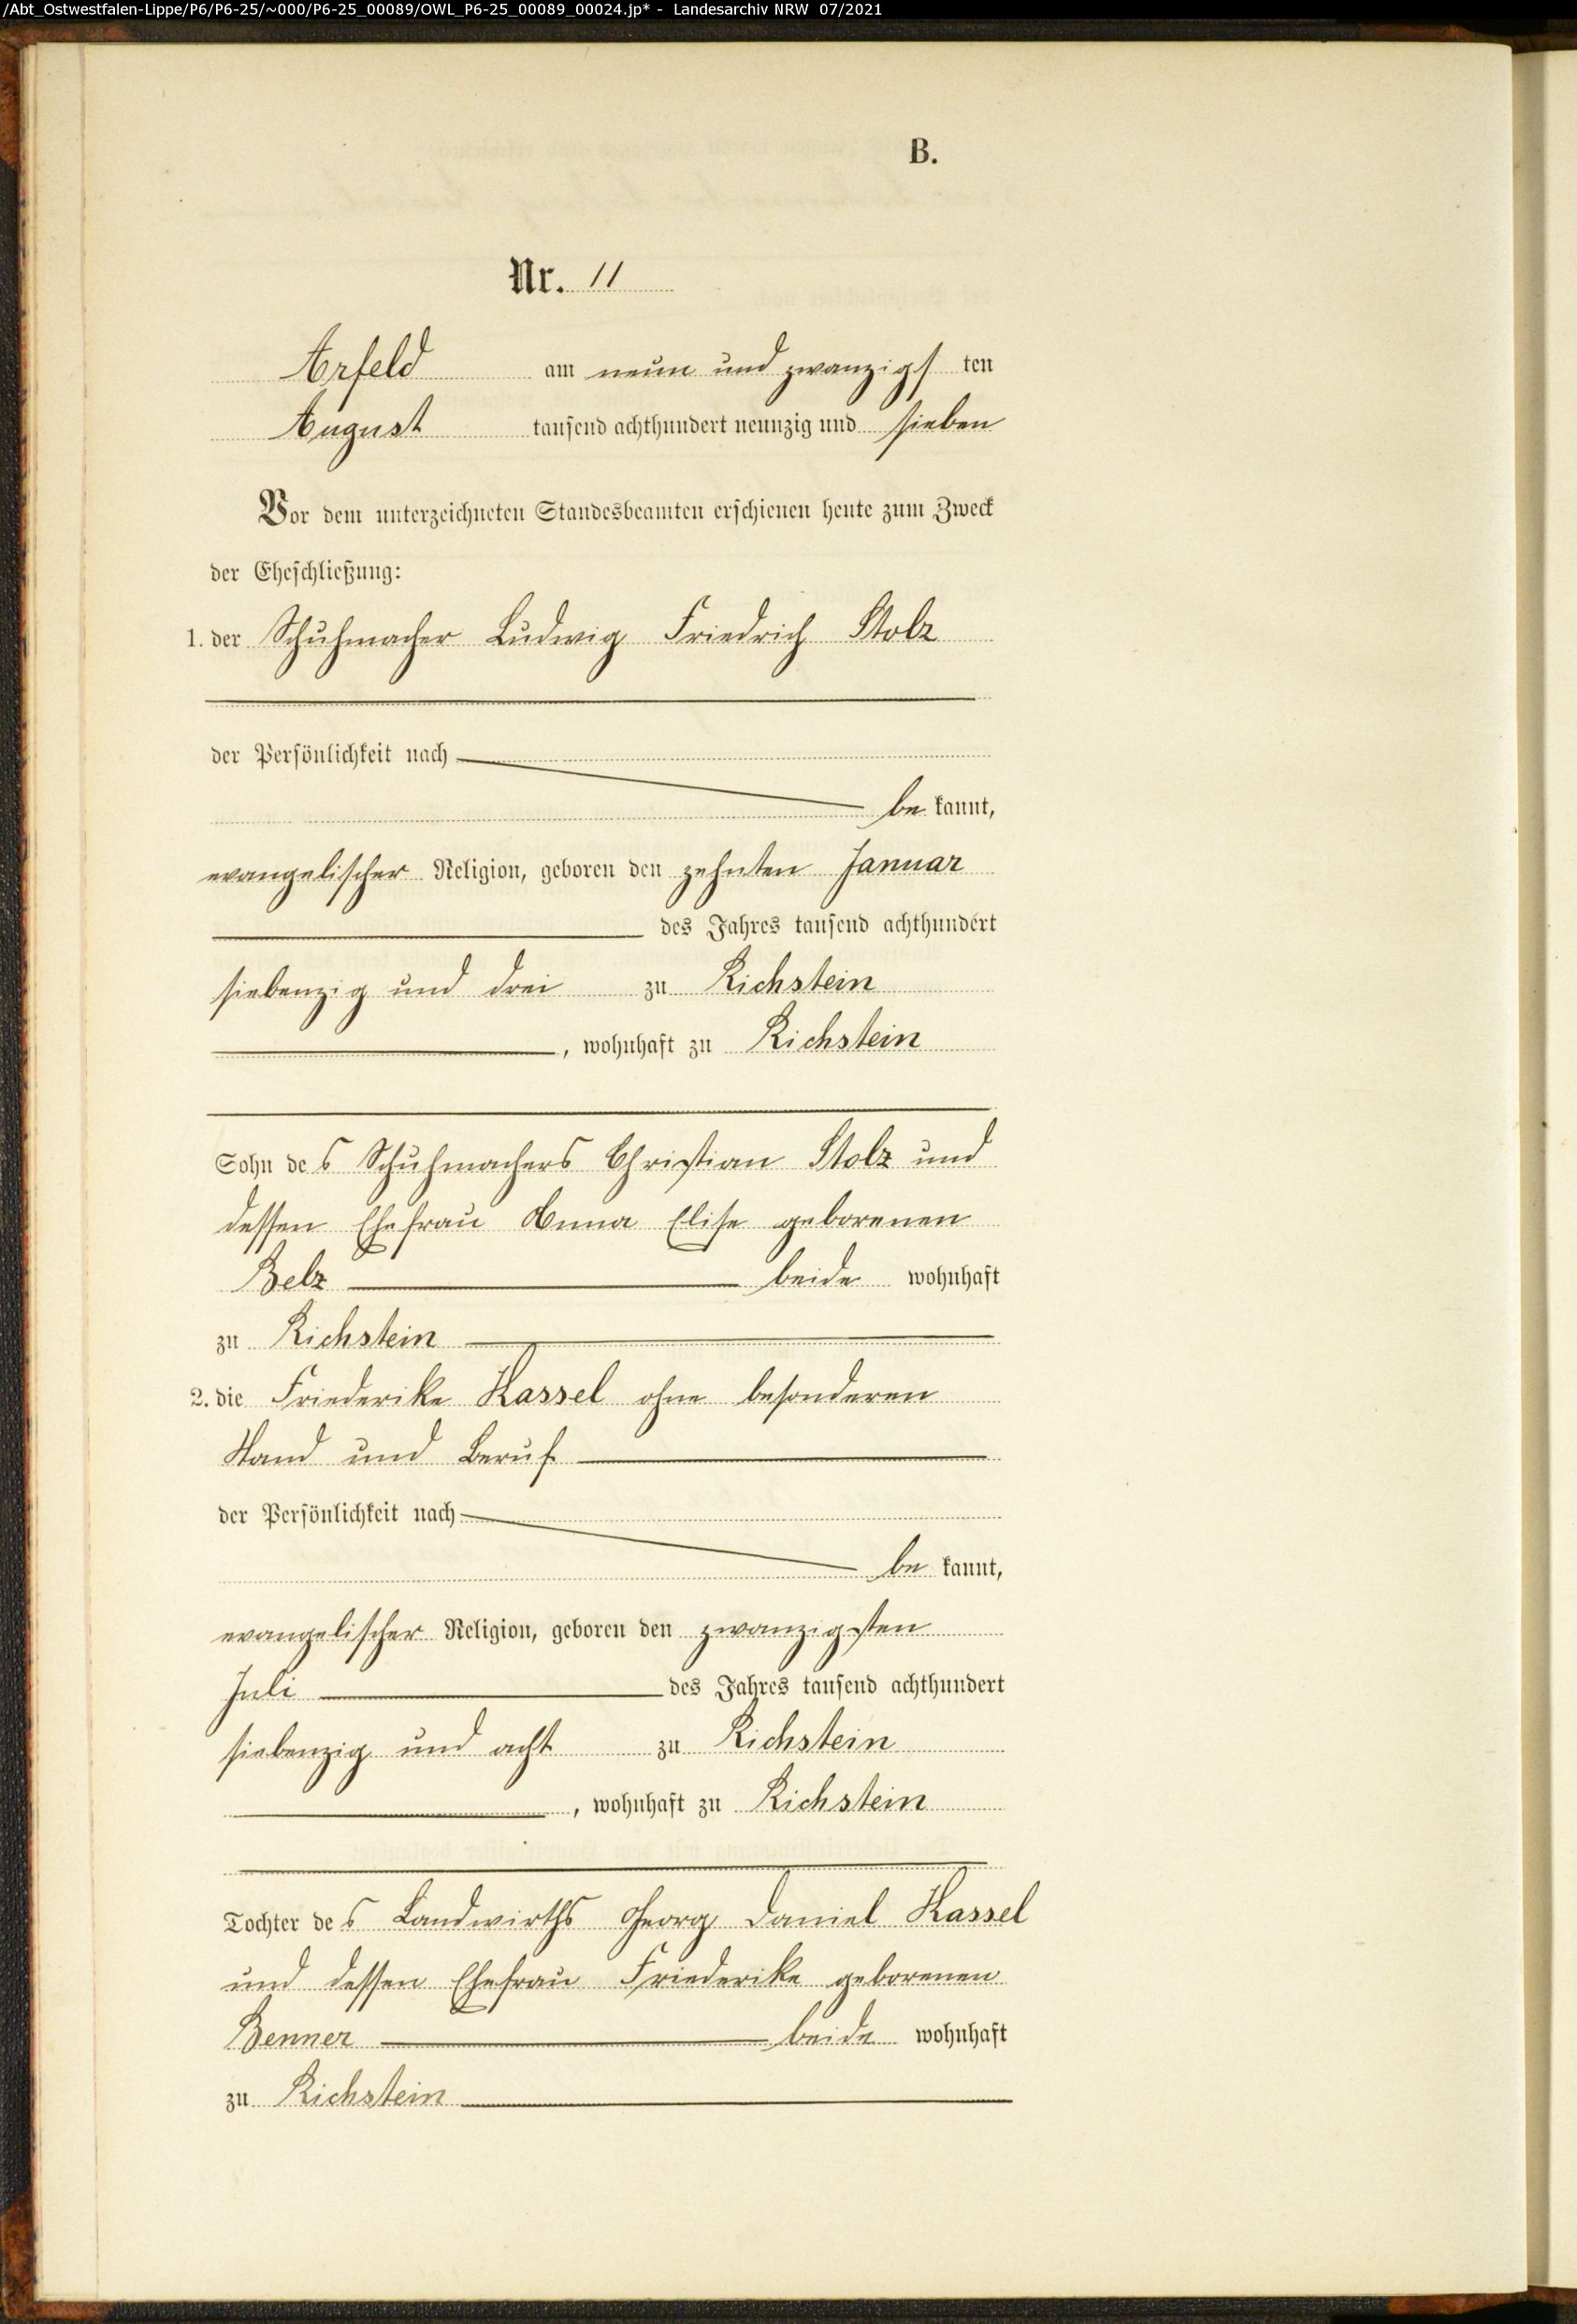 /Abt_Ostwestfalen-Lippe/P6/P6-25/~000/P6-25_00089/OWL_P6-25_00089_00024.jp* - Landesarchiv NRW 07/2021
B.
Nr. 11
Arfeld am neun und zwanzigs ten
August tausend achthundert neunzig und sieben
Vor dem unterzeichneten Standesbeamten erschienen heute zum Zweck
der Eheschließung:
1. der Schuhmacher Ludwig Friedrich Stolz
der Persönlichkeit nach
be kannt,
evangelischer Religion, geboren den zehnten Januar
des Jahres tausend achthundert
siebenzig und drei zu Richstein
, wohnhaft zu Richstein
Sohn des Schuhmachers Christian Stolz und
dessen Ehefrau Anna Elise geborenen
Belz beide wohnhaft
zu Richstein
2. die Friederike Kassel ohne besonderen
Stand und Beruf
der Persönlichkeit nach
be kannt,
evangelischer Religion, geboren den zwanzigsten
Juli des Jahres tausend achthundert
siebenzig und acht zu Richstein
, wohnhaft zu Richstein
Tochter des Landwirths Georg Daniel Kassel
und dessen Ehefrau Friederike geborenen
Benner beide wohnhaft
zu Richstein